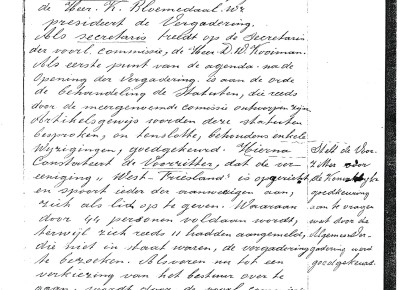 de Heer. K. Bloemedaal. Wz
presideert de Vergadering.
Als secretaris treedt op de Secretaris
der voorl. commissie, de Heer D. W. Kooiman.
Als eerste punt van de agenda na de
Opening der Vergadering is aan de orde
de behandeling de Statuten, die reeds
door de meergenoemde comissie ontworpen zijn.
Artikelsgewijs worden deze statuten
besproken, en tenslotte, behoudens enkele
Wijzigingen, goedgekeurd. Hierna
Constateert de Voorzitter, dat de ver-
eeniging „West-Friesland" is opgericht
en spoort ieder der aanwezigen aan,
zich als lid op te geven. Waaraan
door 44 personen voldaan wordt,
terwijl zich reeds 11 hadden aangemeld,
die niet in staat waren, de vergadering
te bezoeken. Alvoren nu tot een
verkiezing van het bestuur over te
gaan, wordt door de voorl.
Stelt de Voor-
z. Mer voor
de Konijkl.
goedkeuring
aan te vragen
wat door de
Algemeene Ver-
gadering werd
goedgekeurd.